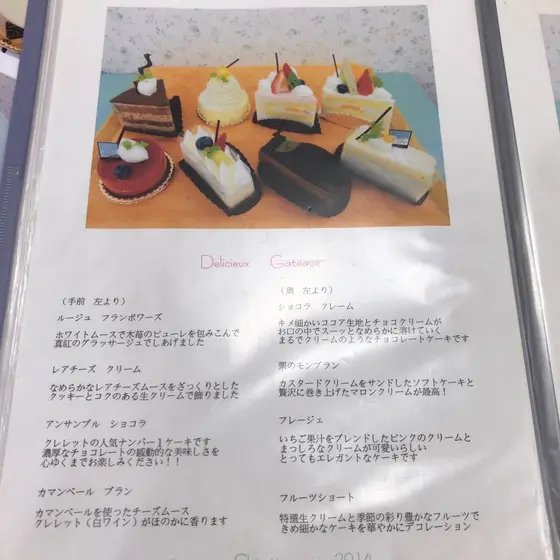 Delicieux Gateaux
（手前 左より）
ルージュ フランボワーズ
ホワイトムースで木苺のピューレを包みこんで
真紅のグラッサージュでしあげました
レアチーズ クリーム
なめらかなレアチーズムースをざっくりとした
クッキーとコクのある生クリームで飾りました
アンサンブル ショコラ
クレレットの人気ナンバー１ケーキです
濃厚なチョコレートの感動的な美味しさを
心ゆくまでお楽しみください！！
カマンベール ブラン
カマンベールを使ったチーズムース
クレレット（白ワイン）がほのかに香ります
（奥 左より）
ショコラ クレーム
キメ細かいココア生地とチョコクリームが
お口の中でスーッとなめらかに溶けていく
まるでクリームのようなチョコレートケーキです
栗のモンブラン
カスタードクリームをサンドしたソフトケーキと
贅沢に巻き上げたマロンクリームが最高！
フレージェ
いちご果汁をブレンドしたピンクのクリームと
まっしろなクリームが可愛いらしい
とってもエレガントなケーキです
フルーツショート
特選生クリームと季節の彩り豊かなフルーツで
きめ細かなケーキを華やかにデコレーション
2014